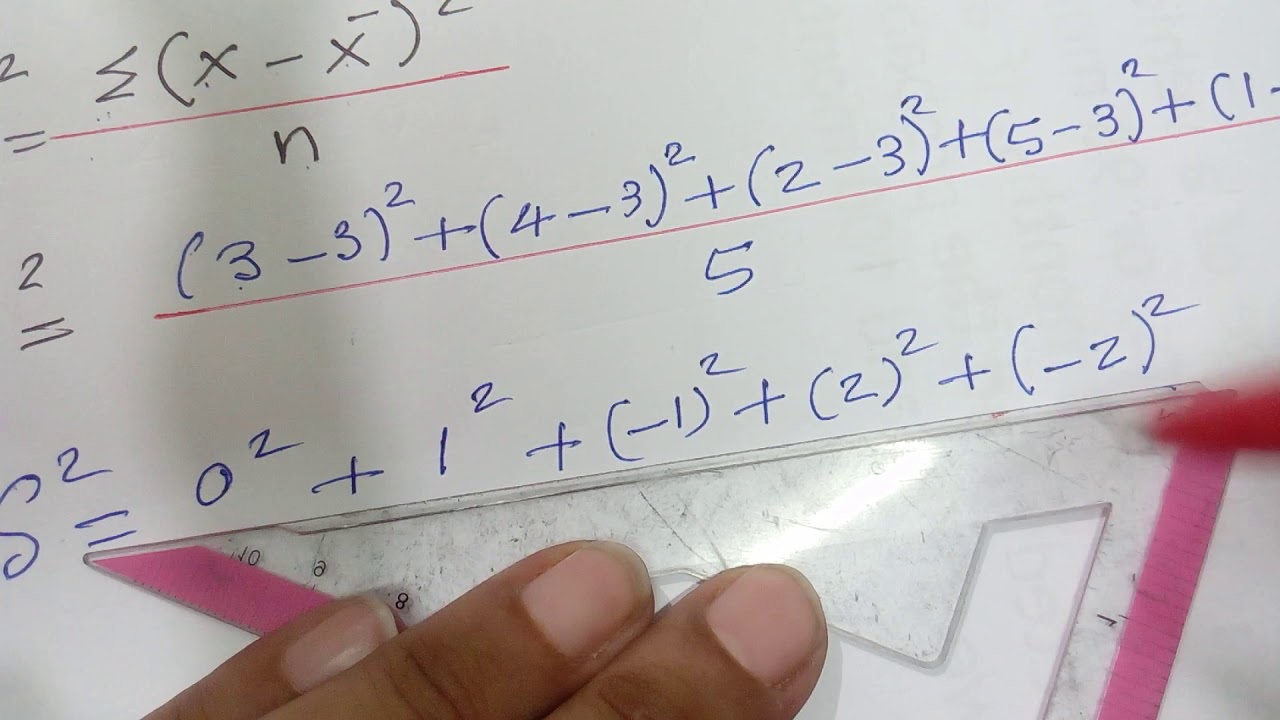 2 = Σ(x - x̄)²
n
2 = (3-3)² + (4-3)² + (2-3)² + (5-3)² + (1-
5
S² = 0² + 1² + (-1)² + (2)² + (-2)²
10 9 8